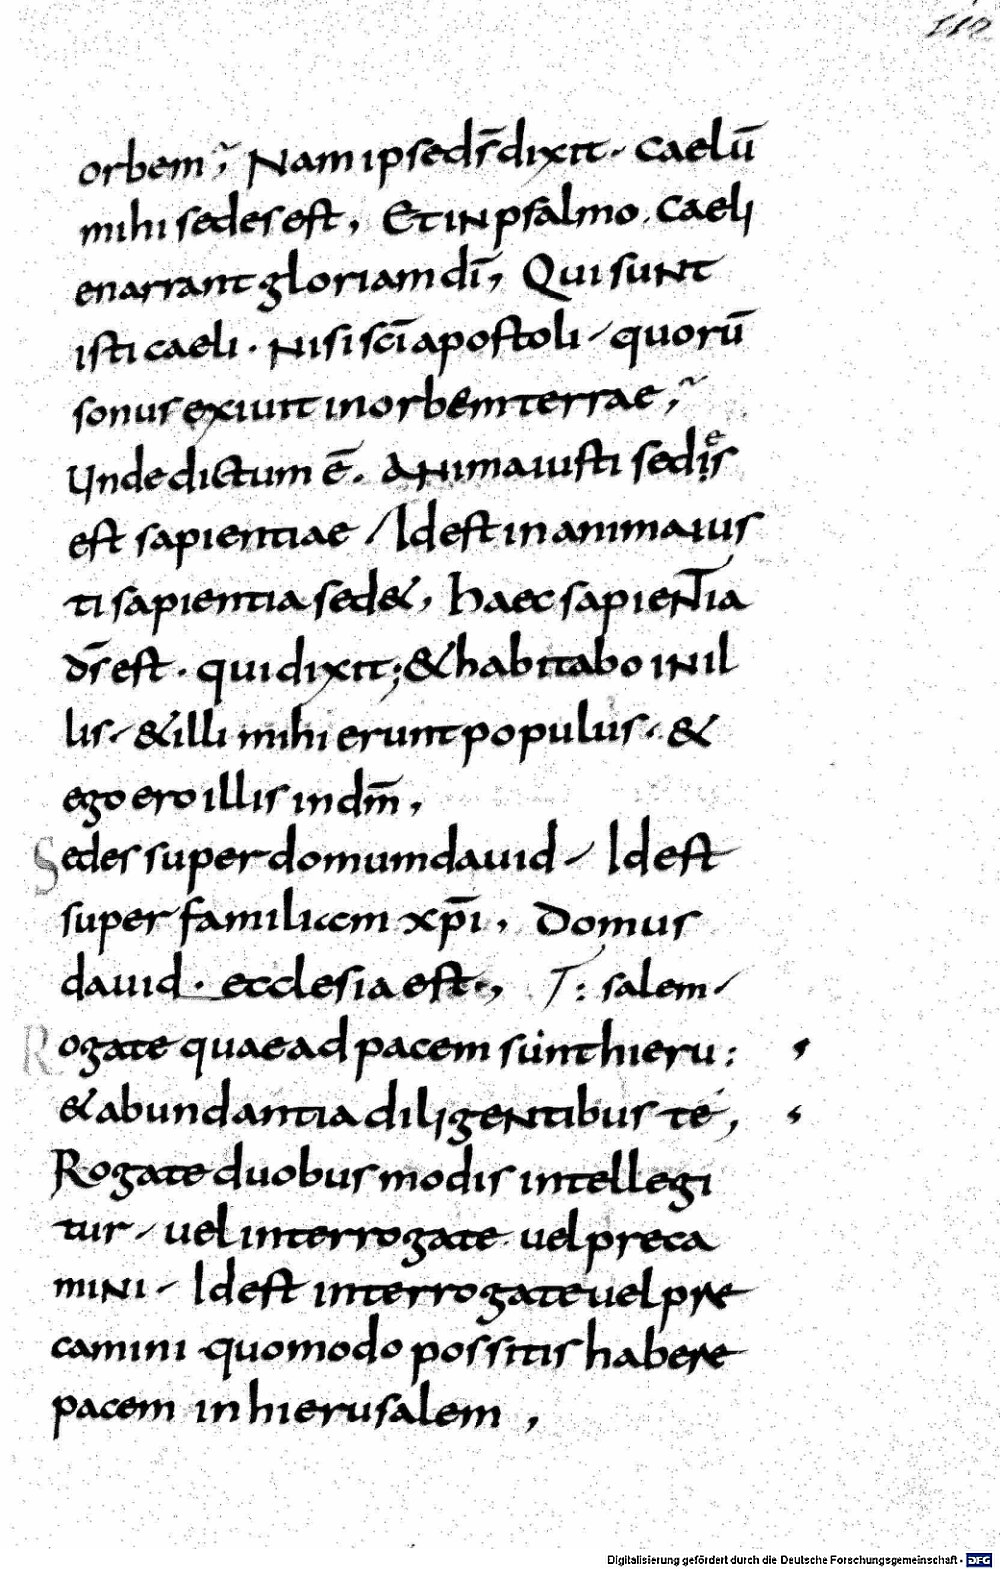 110
orbem; Nam ipse ds̄ dixit. caelū
mihi sedes est, Et in psalmo. Caeli
enarrant gloriam dī, Qui sunt
isti caeli. nisi scī apostoli / quorū
sonus exiuit in orbem terrae,
Unde dictum ē. Anima iusti sedis
est sapientiae / Id est in anima ius
ti sapientia sed&, haec sapientia
ds̄ est. qui dixit; & habitabo in il
lis. & illi mihi erunt populus. &
ego ero illis in dm̄,
Sedes super domum dauid / Id est
super familiam xpī, Domus
dauid. ecclesia est., T: salem /
Rogate quae ad pacem sunt hieru:
& abundantia diligentibus te,
Rogate duobus modis intellegi
tur / uel interrogate uel preca
mini / Id est interrogate uel pre
camini quomodo possitis habere
pacem in hierusalem,
Digitalisierung gefördert durch die Deutsche Forschungsgemeinschaft - DFG